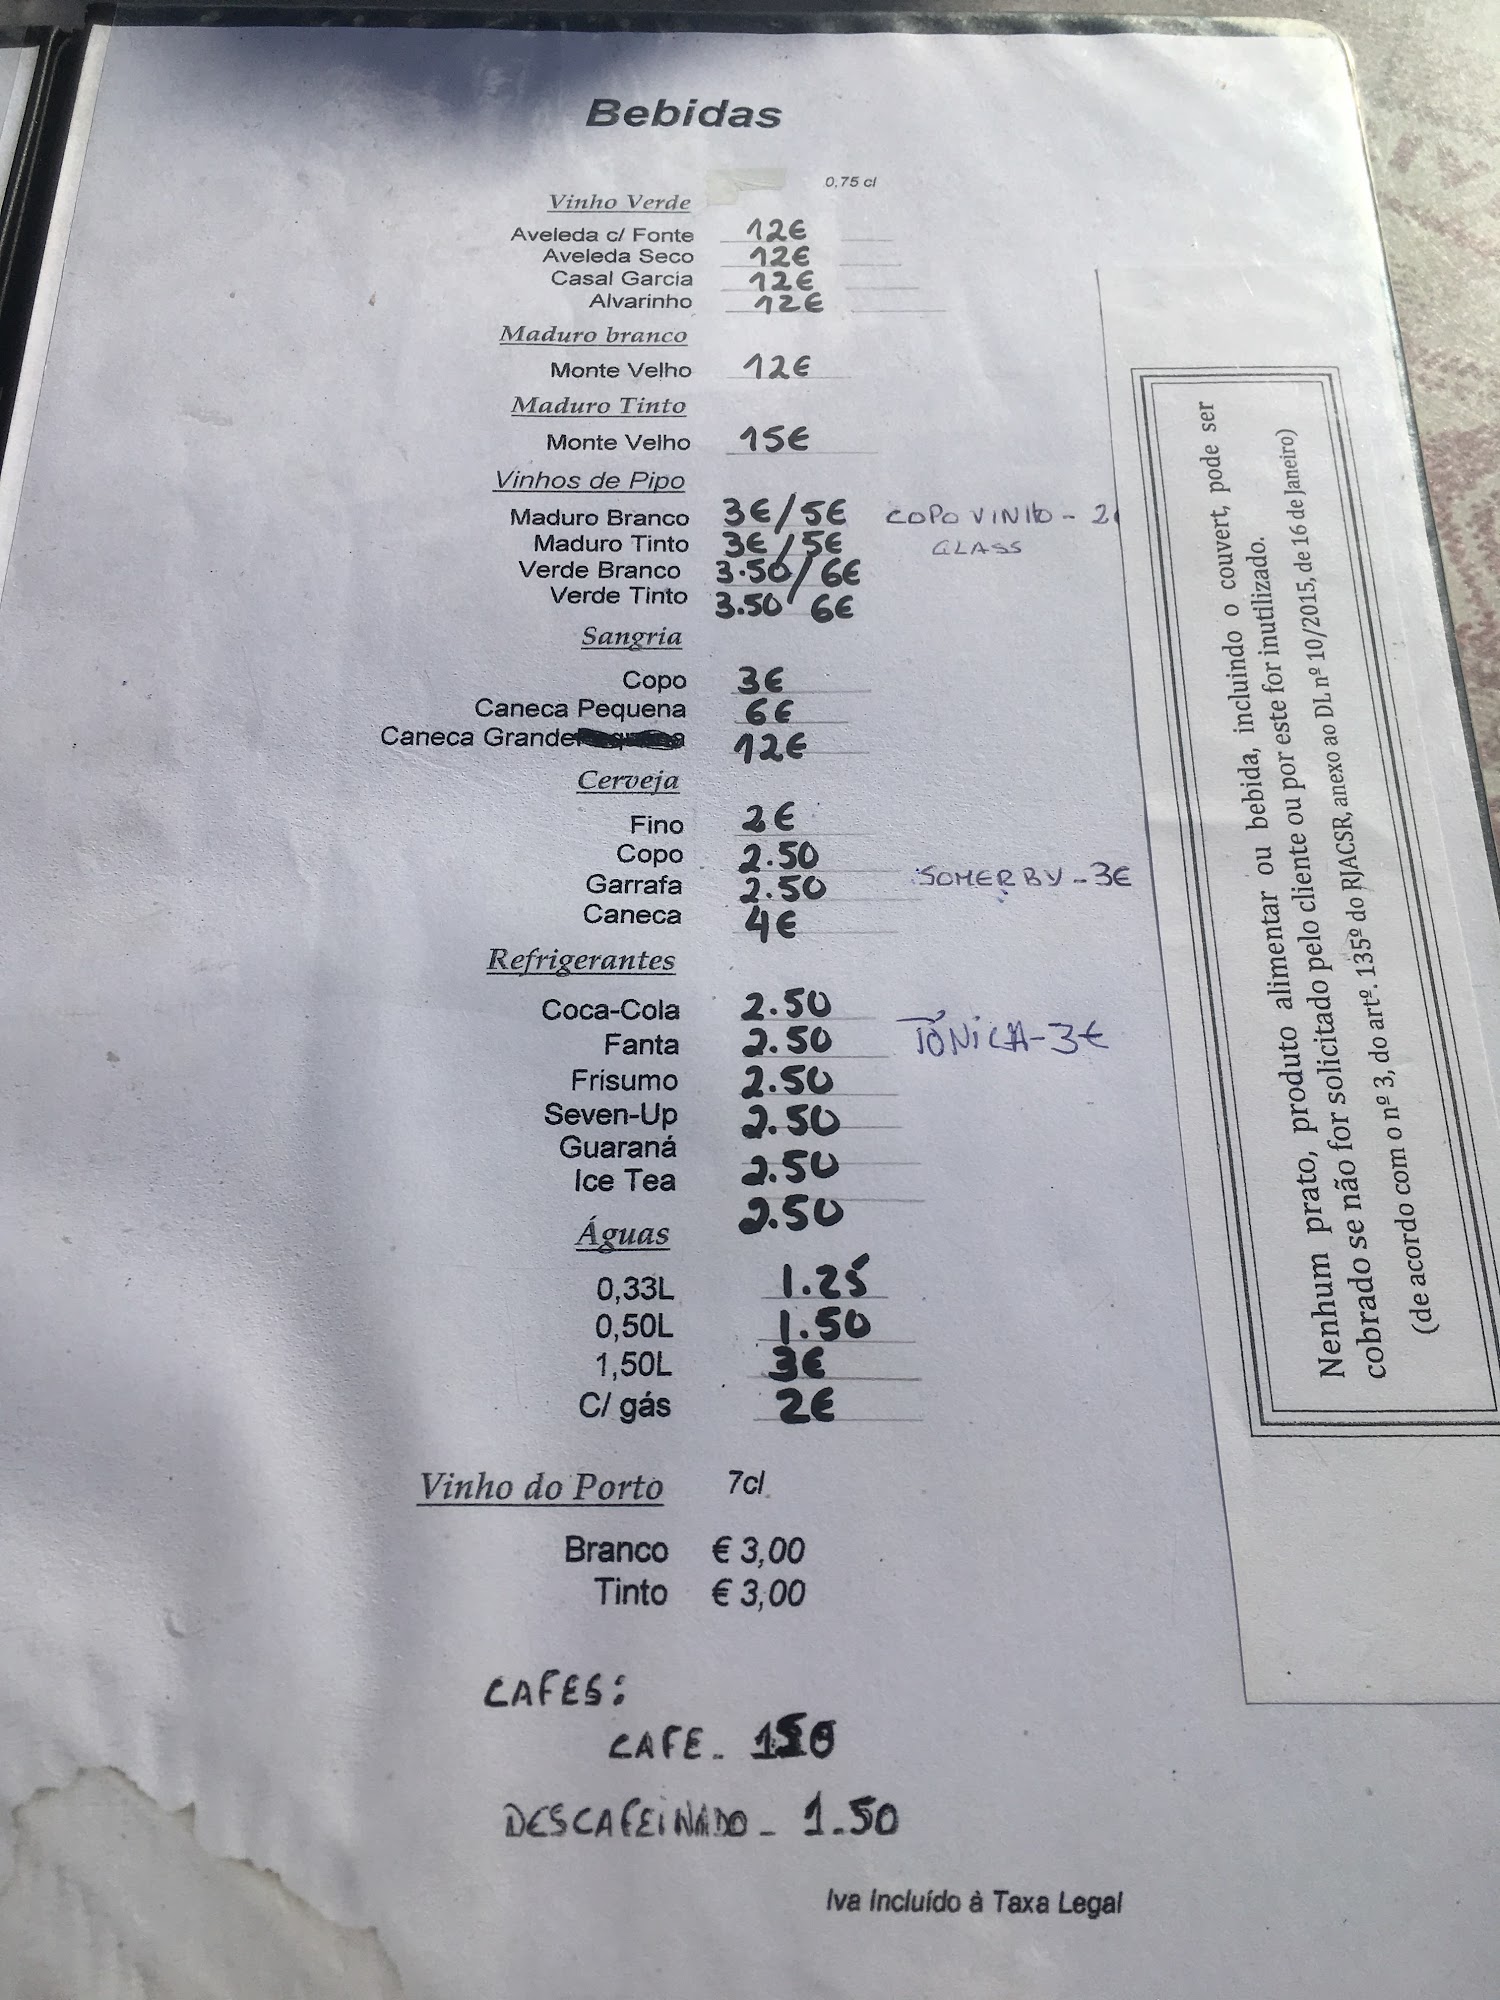 Bebidas
0,75 cl
Vinho Verde
Aveleda c/ Fonte 12€
Aveleda Seco 12€
Casal Garcia 12€
Alvarinho 12€
Maduro branco
Monte Velho 12€
Maduro Tinto
Monte Velho 15€
Vinhos de Pipo
Maduro Branco 3€/5€ COPO VINHO - 2
Maduro Tinto 3€/5€ GLASS
Verde Branco 3.50/6€
Verde Tinto 3.50/6€
Sangria
Copo 3€
Caneca Pequena 6€
Caneca Grande 12€
Cerveja
Fino 2€
Copo 2.50
Garrafa 2.50 SOMERBY - 3€
Caneca 4€
Refrigerantes
Coca-Cola 2.50
Fanta 2.50 TÓNICA - 3€
Frisumo 2.50
Seven-Up 2.50
Guaraná 2.50
Ice Tea 2.50
Águas
0,33L 1.25
0,50L 1.50
1,50L 3€
C/ gás 2€
Vinho do Porto 7cl
Branco € 3,00
Tinto € 3,00
CAFES:
CAFE - 150
DESCAFEINADO - 1.50
Iva Incluído à Taxa Legal
Nenhum prato, produto alimentar ou bebida, incluindo o couvert, pode ser
cobrado se não for solicitado pelo cliente ou por este for inutilizado.
(de acordo com o nº 3, do artº. 135º do RJACSR, anexo ao DL nº 10/2015, de 16 de Janeiro)